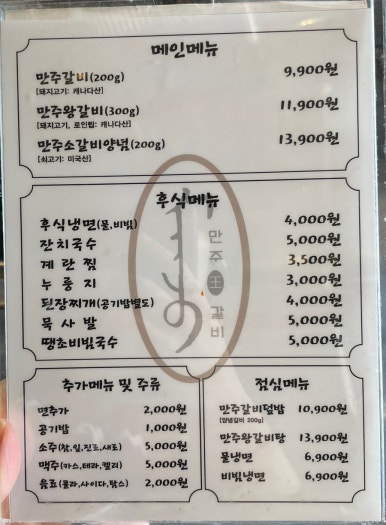 메인메뉴
만주갈비(200g) 9,900원
[돼지고기: 캐나다산]
만주왕갈비(300g) 11,900원
[돼지고기, 로인립: 캐나다산]
만주소갈비양념(200g) 13,900원
[쇠고기: 미국산]
후식메뉴
후식냉면(물,비빔) 4,000원
잔치국수 5,000원
계란찜 3,500원
누룽지 3,000원
된장찌개(공기밥별도) 4,000원
묵사발 5,000원
땡초비빔국수 5,000원
만주王갈비
추가메뉴 및 주류
면추가 2,000원
공기밥 1,000원
소주(참,잎,진로,새로) 5,000원
맥주(카스,테라,켈리) 5,000원
음료(콜라,사이다,탐스) 2,000원
점심메뉴
만주갈비덮밥 10,900원
(양념갈비 200g)
만주왕갈비탕 13,900원
물냉면 6,900원
비빔냉면 6,900원